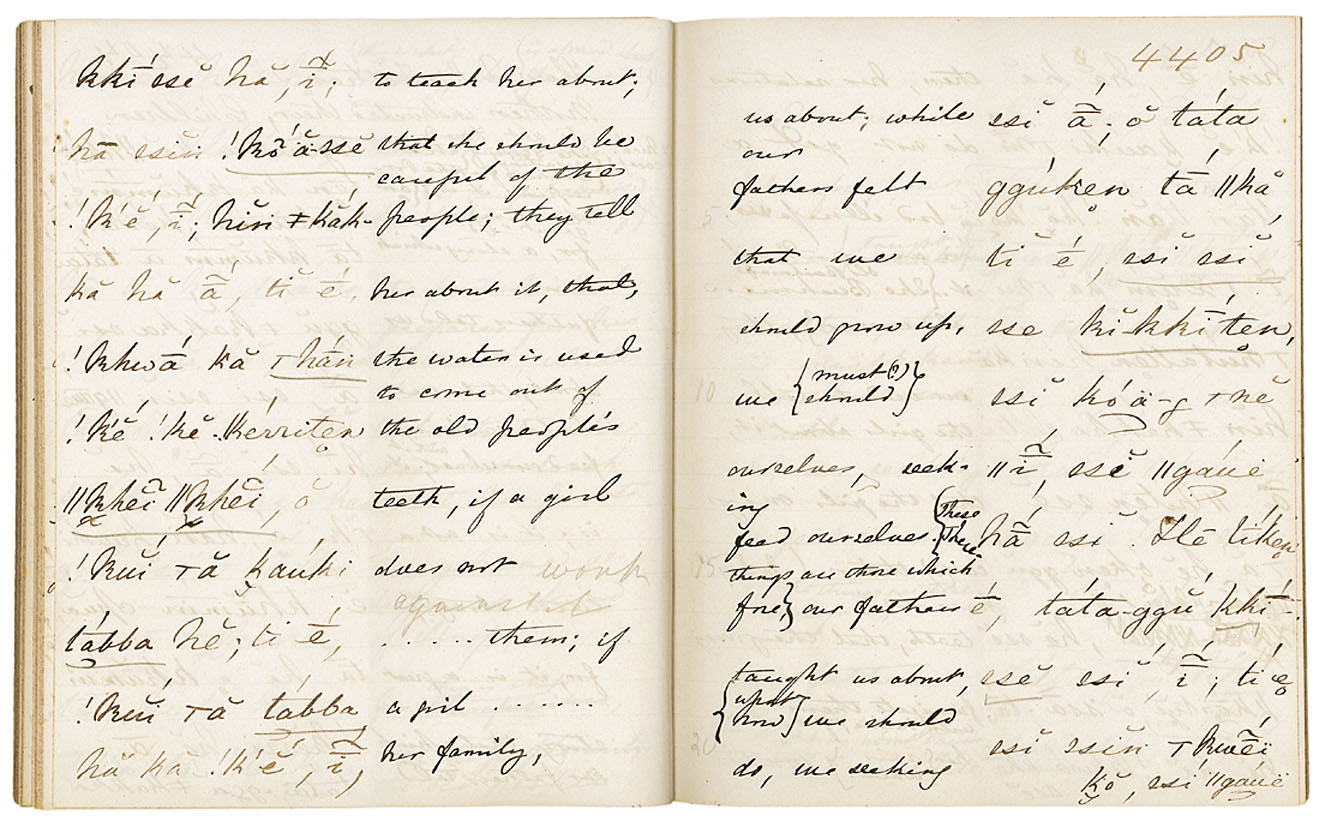 kkí ssĕ hă, ĩ́; to teach her about;
hă ssin !kŏ́ ä-ssĕ that she should be
careful of the
!k'é, ĩ́; hin ǂkăk- people; they tell
kă hă ā̃́, tĭ é, her about it, that,
!khwá̄ kă ⊤hán the water is used
to come out of
!k'é !kĕ ǁkérriten the old people's
ǁkhéi ǁkhéi, ŏ teeth, if a girl
!kuí ⊤ă káuki does not work
against
tábba hĕ; tĭ é, ..... them; if
!kuí ⊤ă tábba a girl ......
hă kă !k'é, ĩ́, her family,
4405
us about; while ssĭ ā̃́; ŏ táta
our
fathers felt ggúken tá ǁkă
that we tĭ é, ssĭ ssĭ
should grow up, sse kĭ-kkíten,
we {must(?) should} ssĭ kóä- ⊤nĕ
ourselves, seek- ǁĩ́, ssĕ ǁgáuë
ing
feed ourselves. {These There hā̃́ ssĭ. Hĕ tíken
things are those which
fore} our fathers é, táta-ggŭ kkí-
taught us about, ssĕ ssĭ, ĩ́; tí ĕ
{upat now} we should
ssĭ ssin ⊤kwéï
do, we seeking kŏ, ssĭ ǁgáuë